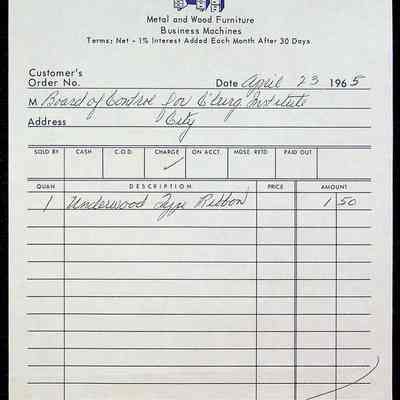 Metal and Wood Furniture
Business Machines
Terms: Net - 1% Interest Added Each Month After 30 Days.
Customer's
Order No. Date April 23 1965
M Board of Control for C'burg Institute
Address City
SOLD BY CASH C.O.D. CHARGE ON ACCT. MDSE. RETD. PAID OUT
QUAN DESCRIPTION PRICE AMOUNT
1 Underwood Type Ribbon 1 50